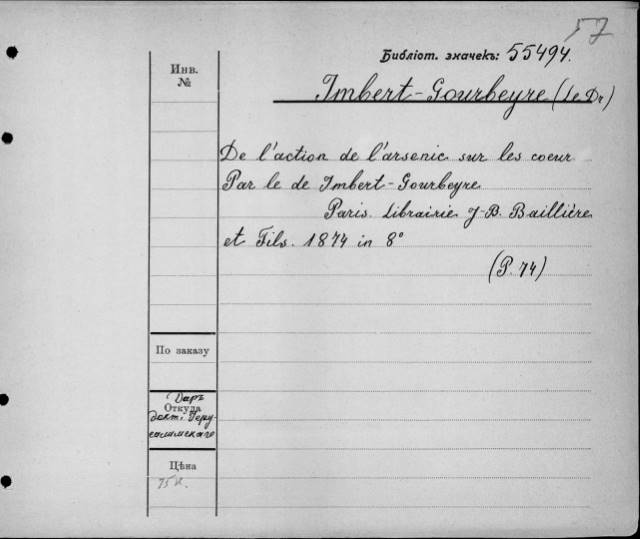 57
Библіот. значекъ: 55494.
Инв.
№
Imbert-Gourbeyre (Le Dr)
De l'action de l'arsenic sur les coeur
Par le de Imbert-Gourbeyre
Paris. Librairie J-B. Baillière
et Fils. 1874 in 8°
(P. 74)
По заказу
Даръ
Откуда
докт. Іеру-
салимскаго
Цѣна
75 к.